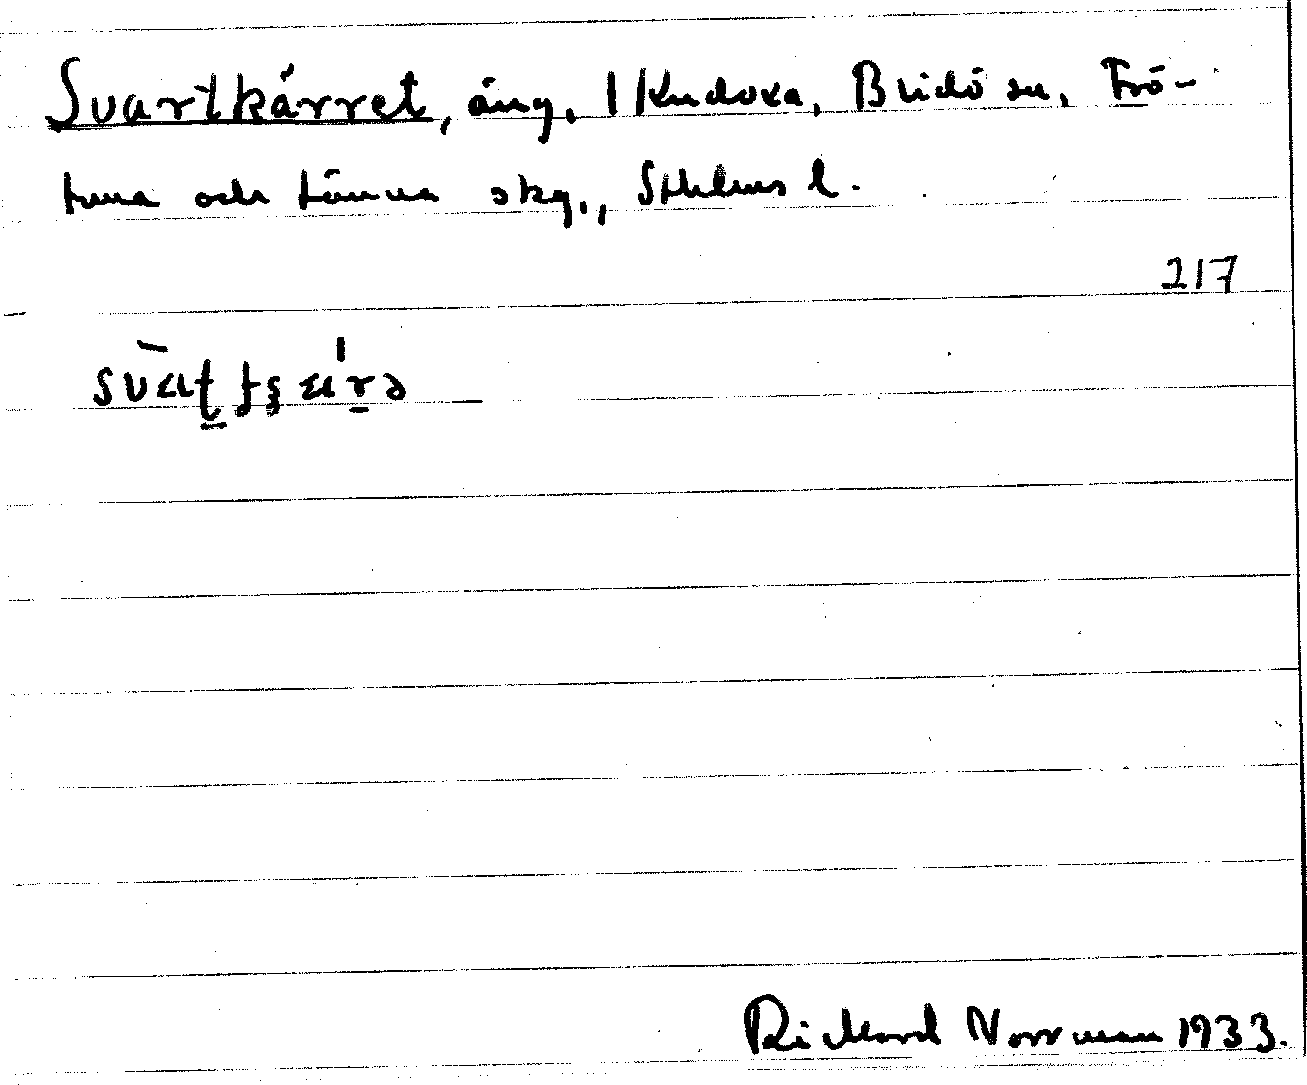 Svartkärret, äng, 1 Kudoxa, Blidö sn, Frö-
tuna och Länna skg., Sthlms l.
217
Rickard Norrman 1933.